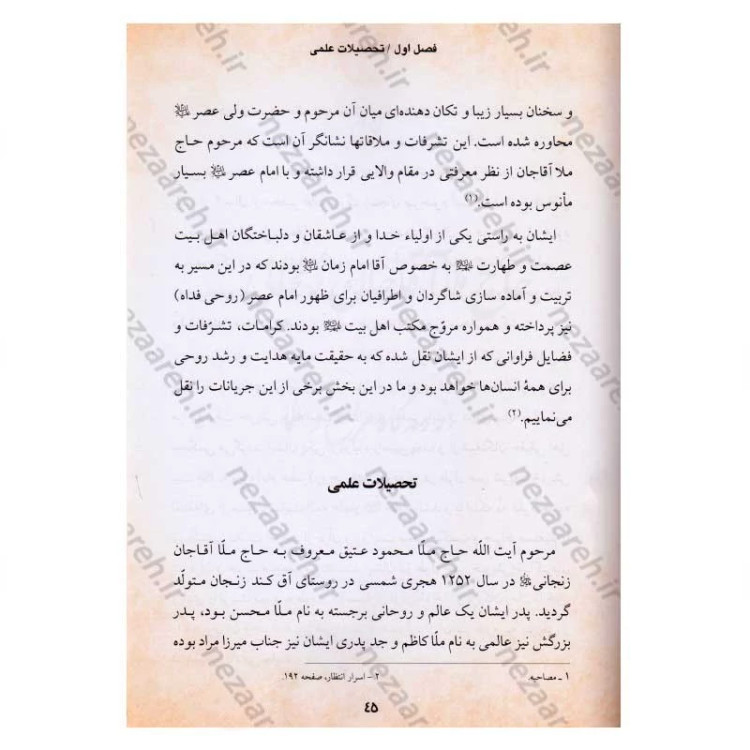 فصل اول / تحصیلات علمی
و سخنان بسیار زیبا و تکان دهنده‌ای میان آن مرحوم و حضرت ولی عصر
محاوره شده است. این تشرفات و ملاقاتها نشانگر آن است که مرحوم حاج
ملا آقاجان از نظر معرفتی در مقام والایی قرار داشته و با امام عصر بسیار
مأنوس بوده است.(۱)
ایشان به راستی یکی از اولیاء خدا و از عاشقان و دلباختگان اهل بیت
عصمت و طهارت به خصوص آقا امام زمان بودند که در این مسیر به
تربیت و آماده سازی شاگردان و اطرافیان برای ظهور امام عصر (روحی فداه)
نیز پرداخته و همواره مروّج مکتب اهل بیت بودند. کرامات، تشرّفات و
فضایل فراوانی که از ایشان نقل شده که به حقیقت مایه هدایت و رشد روحی
برای همهٔ انسان‌ها خواهد بود و ما در این بخش برخی از این جریانات را نقل
می‌نماییم.(۲)
تحصیلات علمی
مرحوم آیت اللّه حاج ملّا محمود عتیق معروف به حاج ملّا آقاجان
زنجانی در سال ۱۲۵۲ هجری شمسی در روستای آق کند زنجان متولّد
گردید. پدر ایشان یک عالم و روحانی برجسته به نام ملّا محسن بود، پدر
بزرگش نیز عالمی به نام ملّا کاظم و جد پدری ایشان نیز جناب میرزا مراد بوده
۱ - مصاحبه. ۲ - اسرار انتظار، صفحه ۱۹۲.
۴۵
nezaareh.ir
nezaareh.ir
nezaareh.ir
nezaareh.ir
nezaareh.ir
nezaareh.ir